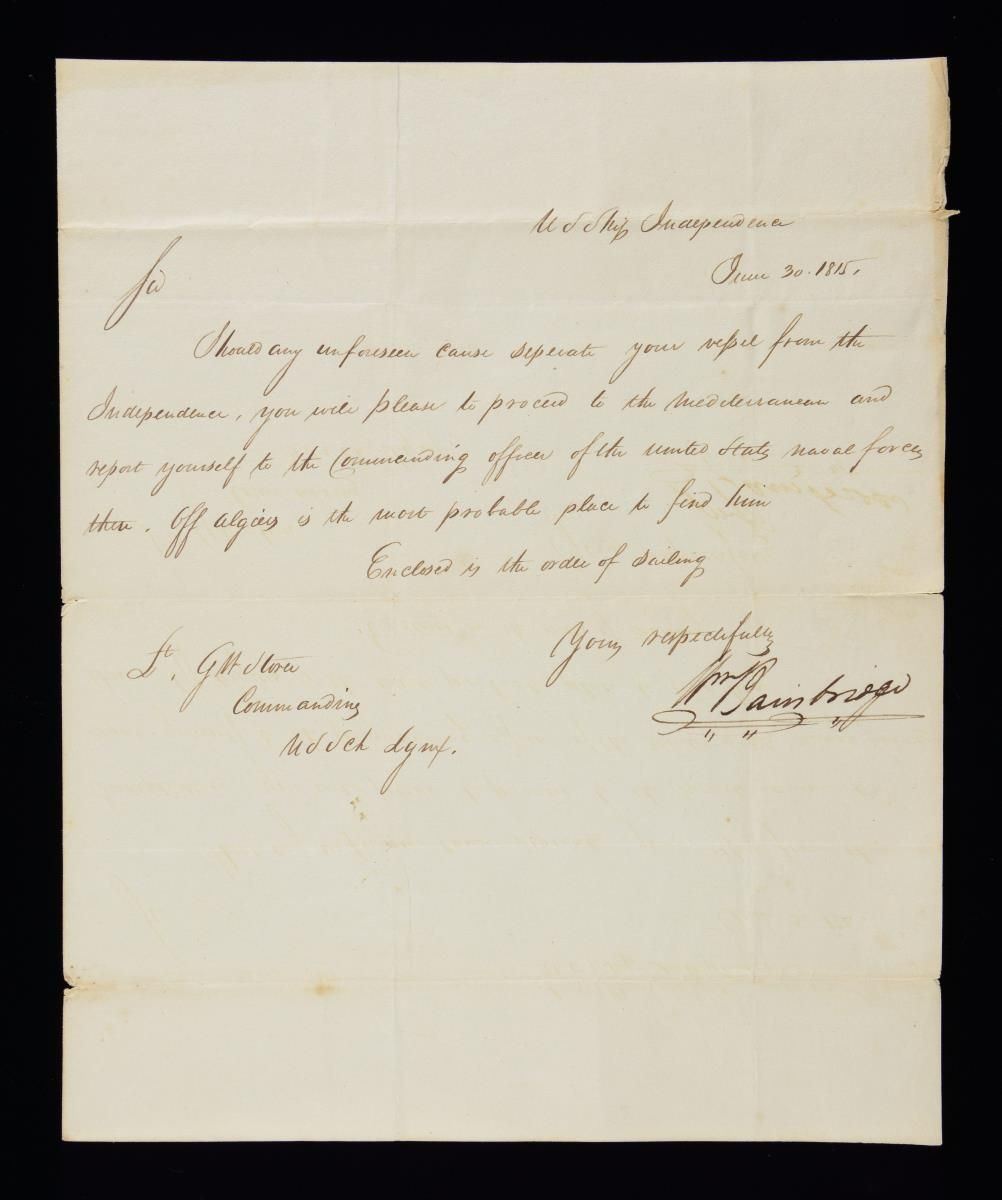 U S Ship Independence
June 30. 1815.
Sir
Should any unforeseen cause seperate your vessel from the
Independence, you will please to proceed to the Mediterranean and
report yourself to the Commanding officer of the United States naval forces
there. Off Algiers is the most probable place to find him
Enclosed is the order of sailing
Yours respectfully
Wm Bainbridge
Lt. G W Storer
Commanding
U S Sch Lynx.